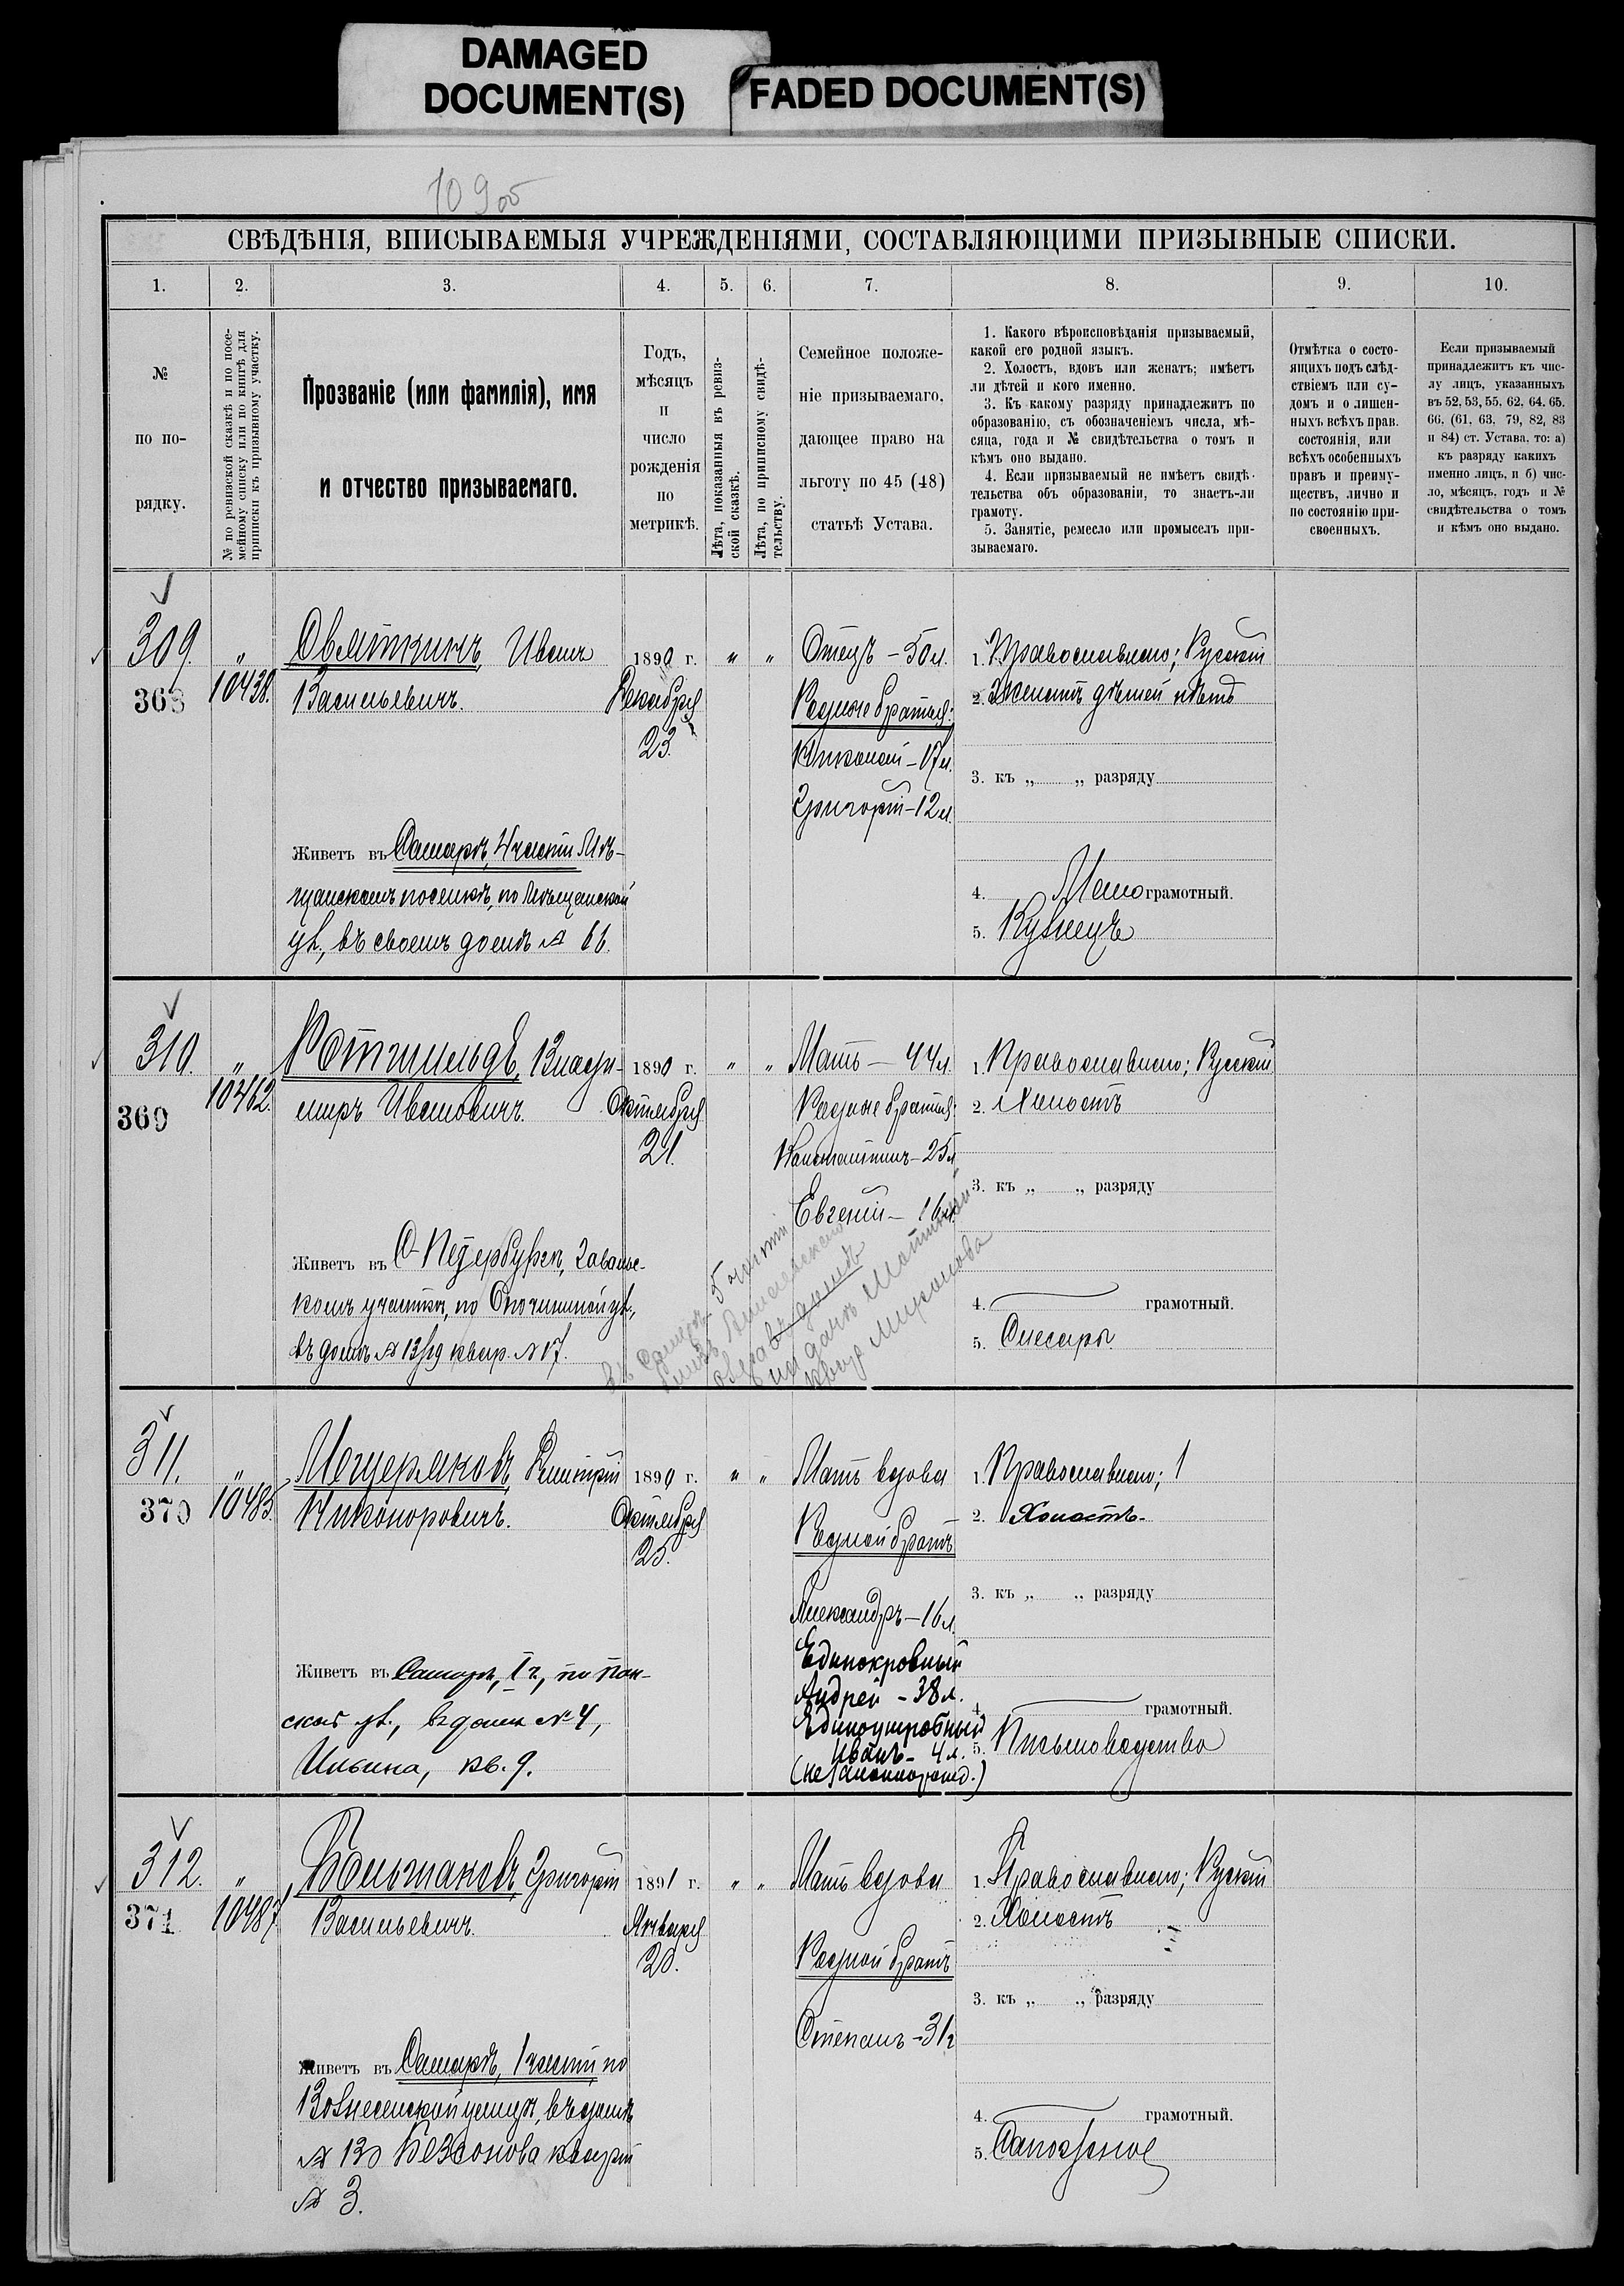 DAMAGED
DOCUMENT(S)
FADED DOCUMENT(S)
109 об
СВѢДѢНІЯ, ВПИСЫВАЕМЫЯ УЧРЕЖДЕНІЯМИ, СОСТАВЛЯЮЩИМИ ПРИЗЫВНЫЕ СПИСКИ.
1. 2. 3. 4. 5. 6. 7. 8. 9. 10.
№
по по-
рядку.
№ по ревизской сказкѣ и по посе-
мейному списку или по книгѣ для
приписки къ призывному участку.
Прозваніе (или фамилія), имя
и отчество призываемаго.
Годъ,
мѣсяцъ
и
число
рожденія
по
метрикѣ.
Лѣта, показанныя въ ревиз-
ской сказкѣ.
Лѣта, по приписному свидѣ-
тельству.
Семейное положе-
ніе призываемаго,
дающее право на
льготу по 45 (48)
статьѣ Устава.
1. Какого вѣроисповѣданія призываемый,
какой его родной языкъ.
2. Холостъ, вдовъ или женатъ; имѣетъ
ли дѣтей и кого именно.
3. Къ какому разряду принадлежитъ по
образованію, съ обозначеніемъ числа, мѣ-
сяца, года и № свидѣтельства о томъ и
кѣмъ оно выдано.
4. Если призываемый не имѣетъ свидѣ-
тельства объ образованіи, то знаетъ-ли
грамоту.
5. Занятіе, ремесло или промыселъ при-
зываемаго.
Отмѣтка о состо-
ящихъ подъ слѣд-
ствіемъ или су-
домъ и о лишен-
ныхъ всѣхъ прав.
состоянія, или
всѣхъ особенныхъ
правъ и преиму-
ществъ, лично и
по состоянію при-
своенныхъ.
Если призываемый
принадлежитъ къ чис-
лу лицъ, указанныхъ
въ 52, 53, 55, 62, 64, 65,
66, (61, 63, 79, 82, 83
и 84) ст. Устава, то: а)
къ разряду какихъ
именно лицъ, и б) чис-
ло, мѣсяцъ, годъ и №
свидѣтельства о томъ
и кѣмъ оно выдано.
309.
368
"
10438.
Овяткинъ, Иванъ
Васильевичъ.
Живетъ въ Самарѣ, 4 части Мѣ-
щанскомъ поселкѣ, по Мѣщанской
ул., въ своемъ домѣ № 66.
1890 г.
Декабря
23.
" "
Отецъ – 50 л.
Родные братья:
Николай – 17 л.
Григорій – 12 л.
1. Православнаго; Русскій
2. Женатъ дѣтей нѣтъ
3. къ „ „ разряду
4. Мало грамотный.
5. Кузнецъ
310.
369
"
10462.
Ротшильдъ, Влади-
миръ Ивановичъ.
Живетъ въ С-Петербургѣ,
комъ участкѣ, по Опочининой ул.,
въ домѣ № 13/19 квар. № 17.
1890 г.
Октября
21.
" "
Мать – 44 л.
Родные братья:
Константинъ – 25 л.
Евгеній – 16 л.
въ Самарѣ 5 части
1. Православнаго; Русскій
2. Холостъ
3. къ „ „ разряду
4. грамотный.
5. Слесарь.
311.
370
"
10485.
Мещеряковъ, Дмитрій
Никоноровичъ.
Живетъ въ Самарѣ, I ч., по Пан-
ской ул., въ домѣ № 4,
Ильина, кв. 9.
1890 г.
Октября
25.
" "
Мать вдова
Родной братъ
Александръ – 16 л.
Единокровный
Андрей – 38 л.
Единоутробный
Иванъ – 4 л.
(незаконнорожд.)
1. Православнаго; 1
2. Холостъ.
3. къ „ „ разряду
4. грамотный.
5. Письмоводство
312.
371
"
10487
Большаковъ, Григорій
Васильевичъ.
Живетъ въ Самарѣ, 1 части, по
Вознесенской улицѣ, въ домѣ
№ 130 Безсонова
№ 3.
1891 г.
Января
20.
" "
Мать вдова
Родной братъ
Степанъ – 31 л
1. Православнаго; Русскій
2. Холостъ
3. къ „ „ разряду
4. грамотный.
5. Сапожное